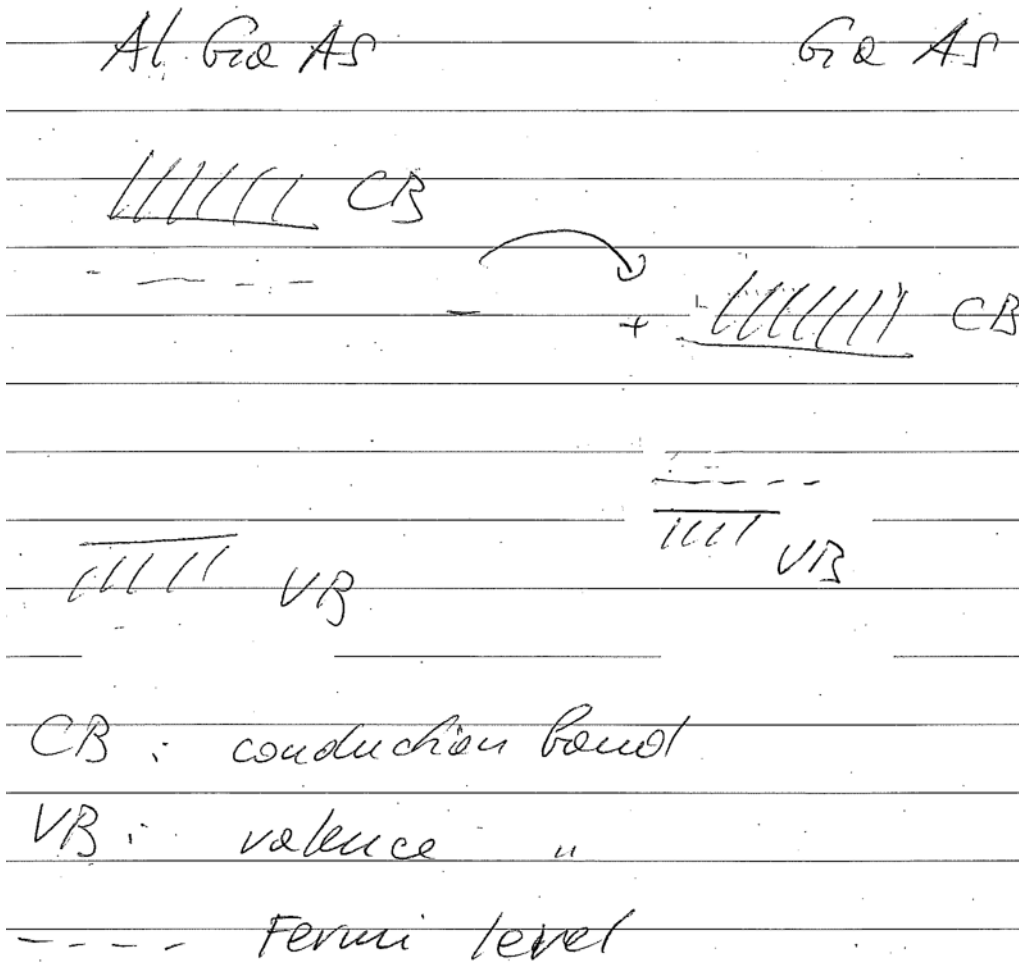 Al Ga As Ga As
CB
- + CB
VB
VB
CB : conduction band
VB : valence "
---- Fermi level